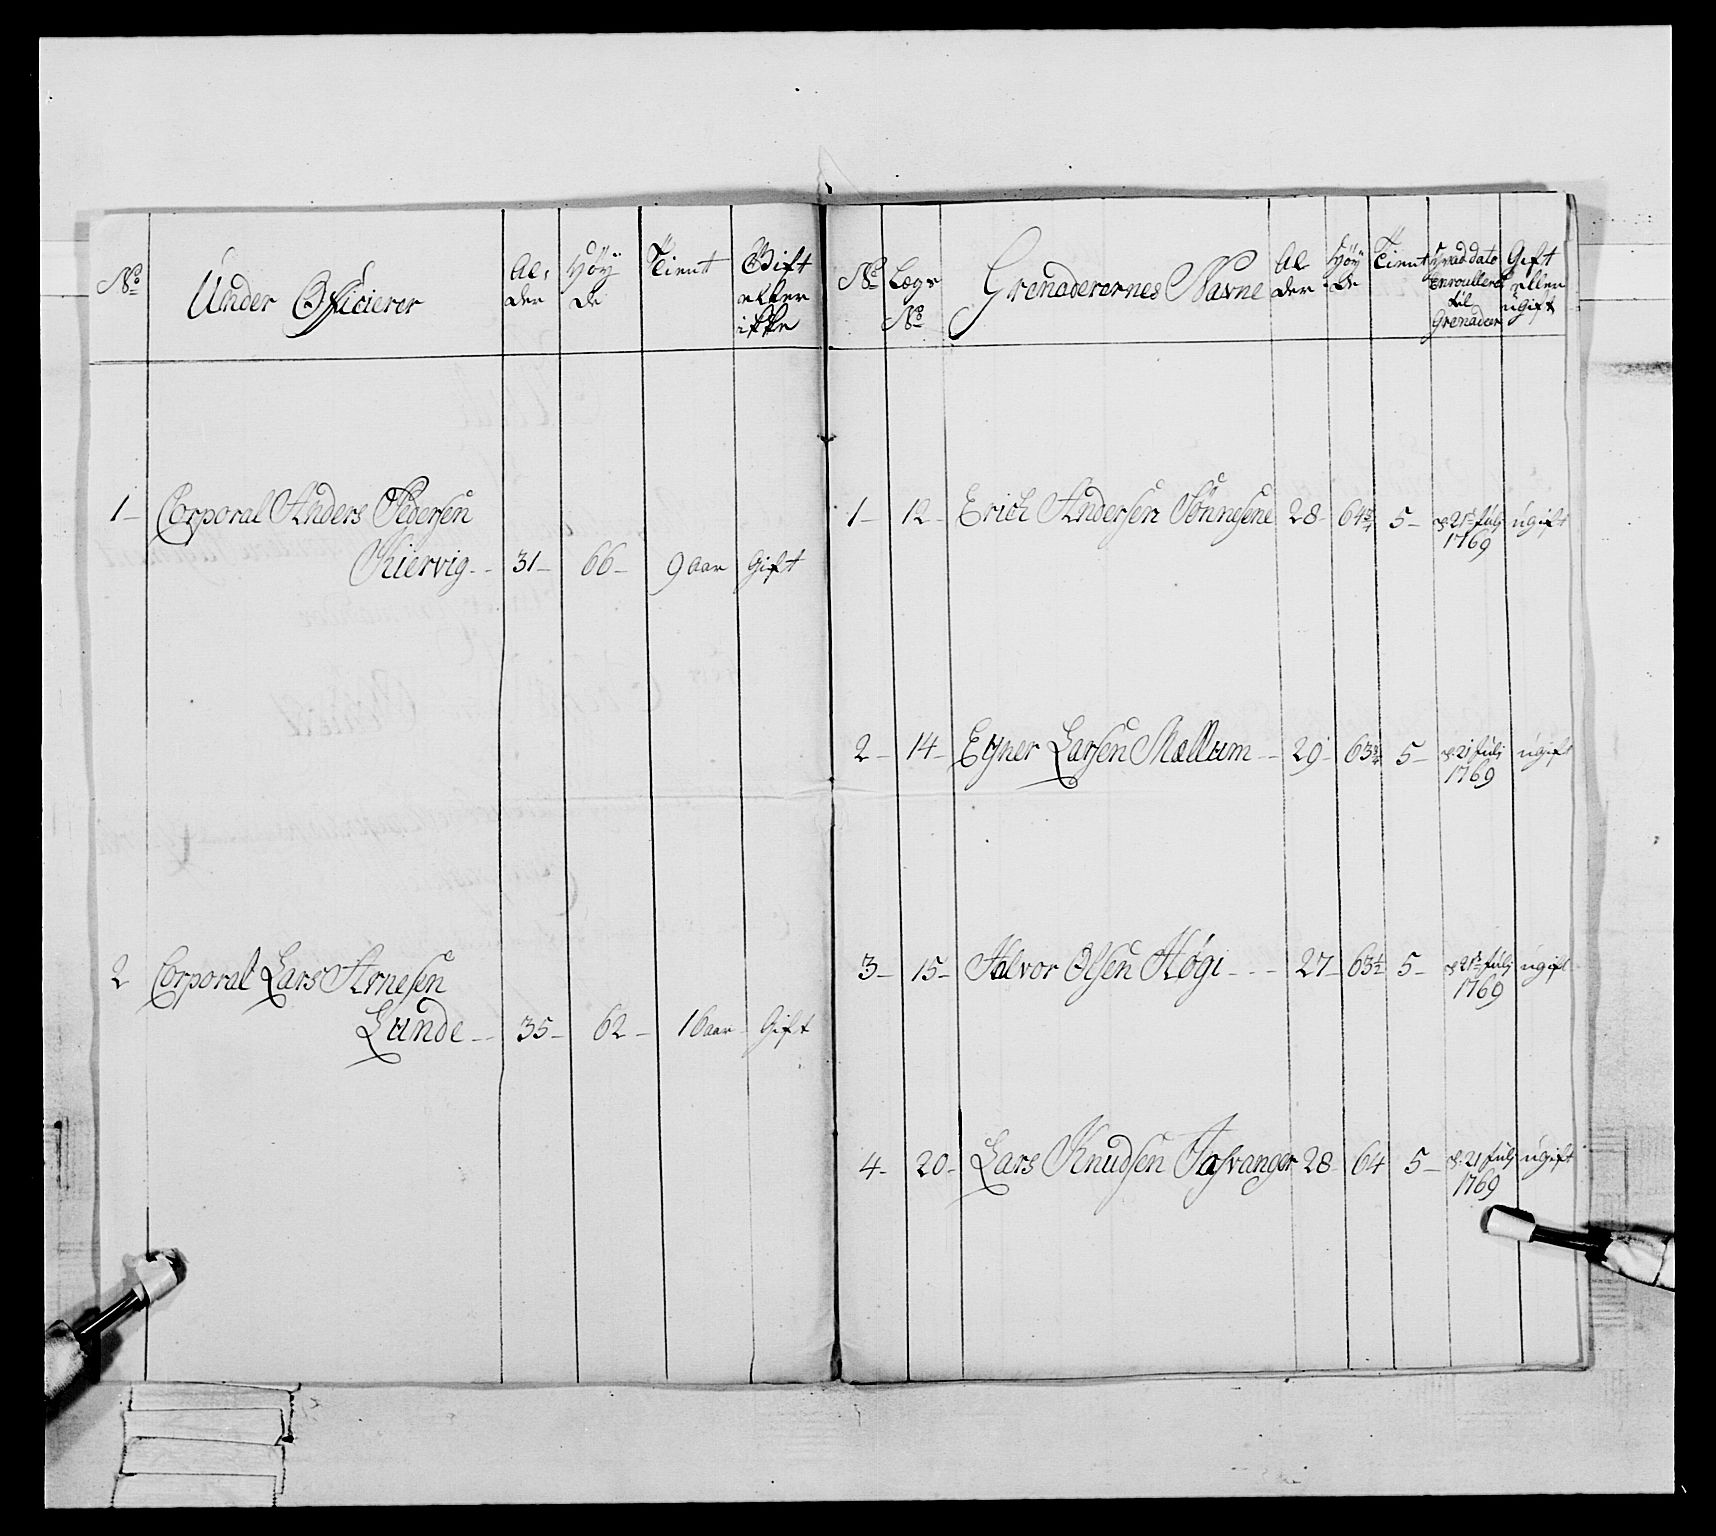 No
Under Officierer
Al,
der
Höy
de
Tient
Gift
eller
ikke
1 Corporal Anders Pedersen
Kiervig 31 66 9 aar Gift
2 Corporal Lars Arnesen
Lunde 35 62 16 aar Gift
No
Lægs
No
Grenaderernes Navne
Al
der
Höy
de
Tient
hvad dato
enroullert
til
Grenadeer
Gift
eller
ugift
1 12 Erich Andersen Sönnesene 28 64 3/4 5 d. 21 Julj ugift
1769
2 14 Eyner Larsen Mællum 29 63 3/4 5 d. 21 Julj ugift
1769
3 15 Halvor Olsen Høgi 27 63 1/2 5 d. 21 Julj ugift
1769
4 20 Lars Knudsen 28 64 5 d. 21 Julj ugift
1769